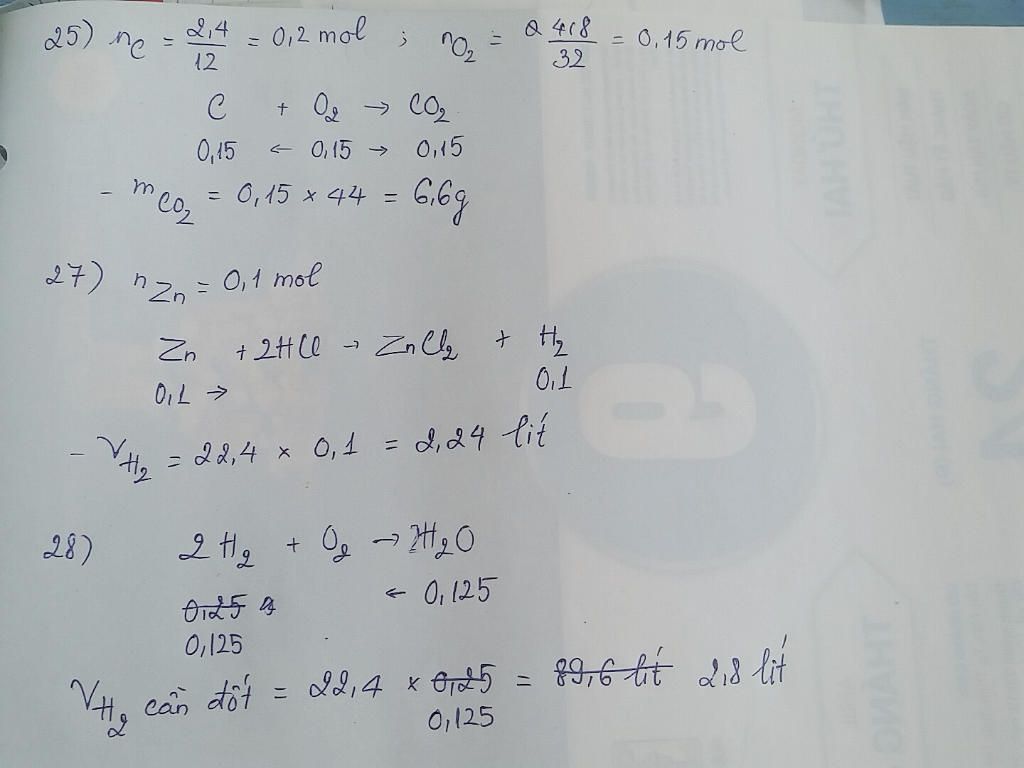 25) nC = 2,4/12 = 0,2 mol ; nO2 = 4,8/32 = 0,15 mol
C + O2 → CO2
0,15 ← 0,15 → 0,15
- mCO2 = 0,15 × 44 = 6,6g
27) nZn = 0,1 mol
Zn + 2HCl → ZnCl2 + H2
0,1 → 0,1
- VH2 = 22,4 × 0,1 = 2,24 lít
28) 2H2 + O2 → 2H2O
0,25 ← 0,125
0,125
VH2 cần đốt = 22,4 × 0,25 = 89,6 lít 2,8 lít
0,125
THỨ HAI
THÁNG